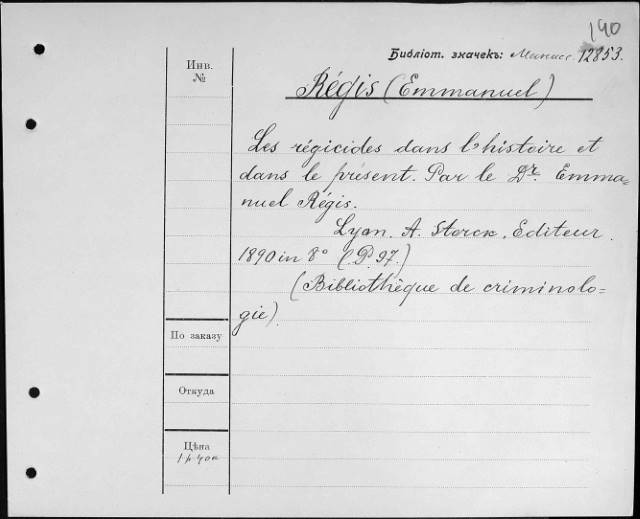 190
Библіот. значекъ: 12853.
Инв.
№
Régis (Emmanuel)
Les régicides dans l'histoire et
dans le présent. Par le Dr. Emma-
nuel Régis.
Lyon. A. Storck, Editeur.
1890 in 8° (P. 97.)
(Bibliothèque de criminolo=
gie).
По заказу
Откуда
Цѣна